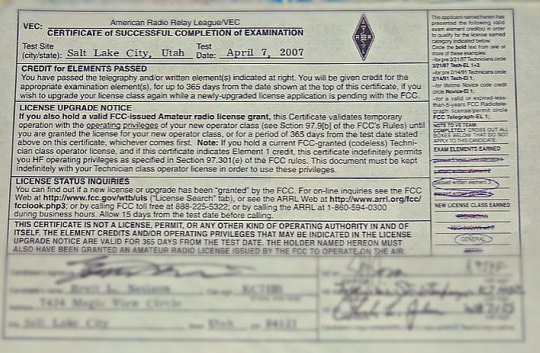 VEC: American Radio Relay League/VEC
CERTIFICATE OF SUCCESSFUL COMPLETION OF EXAMINATION
Test Site (city/state): Salt Lake City, Utah Test Date: April 7, 2007
CREDIT for ELEMENTS PASSED
You have passed the telegraphy and/or written element(s) indicated at right. You will be given credit for the
appropriate examination element(s), for up to 365 days from the date shown at the top of this certificate, if you
wish to upgrade your license class again while a newly-upgraded license application is pending with the FCC.
LICENSE UPGRADE NOTICE
If you also hold a valid FCC-issued Amateur radio license grant, this Certificate validates temporary
operation with the operating privileges of your new operator class (see Section 97.9[b] of the FCC's Rules) until
you are granted the license for your new operator class, or for a period of 365 days from the test date stated
above on this certificate, whichever comes first. Note: If you hold a current FCC-granted (codeless) Techni-
cian class operator license, and if this certificate indicates Element 1 credit, this certificate indefinitely permits
you HF operating privileges as specified in Section 97.301(e) of the FCC rules. This document must be kept
indefinitely with your Technician class operator license in order to use these privileges.
LICENSE STATUS INQUIRIES
You can find out if a new license or upgrade has been "granted" by the FCC. For on-line inquiries see the FCC
Web at http://www.fcc.gov/wtb/uls ("License Search" tab), or see the ARRL Web at http://www.arrl.org/fcc/
fcclook.php3; or by calling FCC toll free at 888-225-5322; or by calling the ARRL at 1-860-594-0300
during business hours. Allow 15 days from the test date before calling.
THIS CERTIFICATE IS NOT A LICENSE, PERMIT, OR ANY OTHER KIND OF OPERATING AUTHORITY IN AND OF
ITSELF. THE ELEMENT CREDITS AND/OR OPERATING PRIVILEGES THAT MAY BE INDICATED IN THE LICENSE
UPGRADE NOTICE ARE VALID FOR 365 DAYS FROM THE TEST DATE. THE HOLDER NAMED HEREON MUST
ALSO HAVE BEEN GRANTED AN AMATEUR RADIO LICENSE ISSUED BY THE FCC TO OPERATE ON THE AIR.
7424 Magic View Circle
Salt Lake City Utah
The applicant named herein has
presented the following valid
exam element credit(s) in order
to qualify for the license earned
category indicated below.
Circle the bold text from one or
more of these examples:
EXAM ELEMENTS EARNED
NEW LICENSE CLASS EARNED
GENERAL